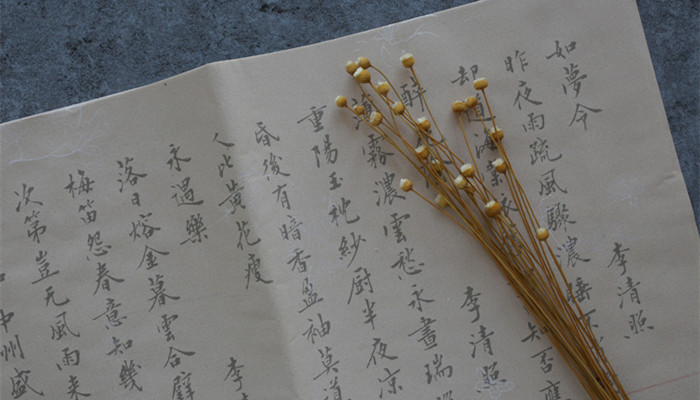 如夢令 李清照
昨夜雨疏風驟濃睡不
却道海棠依 知否應
醉 李清照
薄霧濃雲愁永晝瑞
重陽玉枕紗厨半夜涼
昏後有暗香盈袖莫道
人比黃花瘦
永遇樂 李
落日熔金暮雲合璧
梅笛怨春意知幾
次第豈无風雨來
中州盛